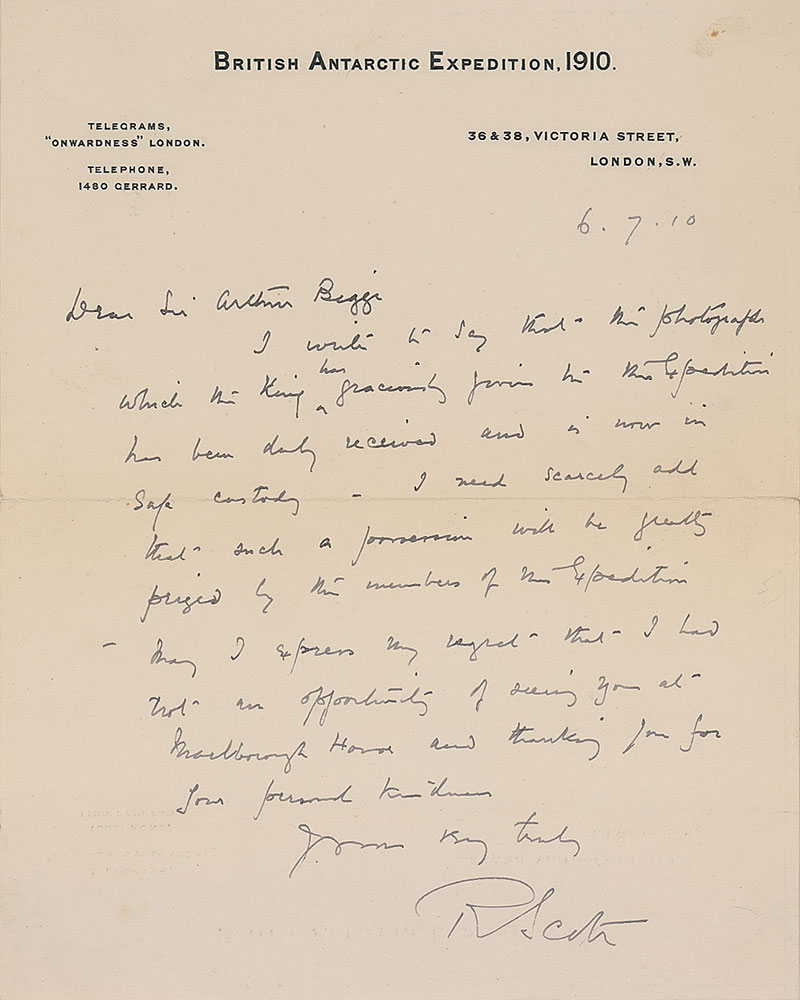 BRITISH ANTARCTIC EXPEDITION, 1910.
TELEGRAMS,
"ONWARDNESS" LONDON.
TELEPHONE,
1480 GERRARD.
36 & 38, VICTORIA STREET,
LONDON, S.W.
6.7.10
Dear Sir Arthur Bigge
I write to say that the photograph
which the King has graciously given to the Expedition
has been duly received and is now in
safe custody - I need scarcely add
that such a possession will be greatly
prized by the members of the Expedition
- May I express my regret that I had
not an opportunity of seeing you at
Marlborough House and thanking you for
your personal kindness
Yours very truly
R Scott